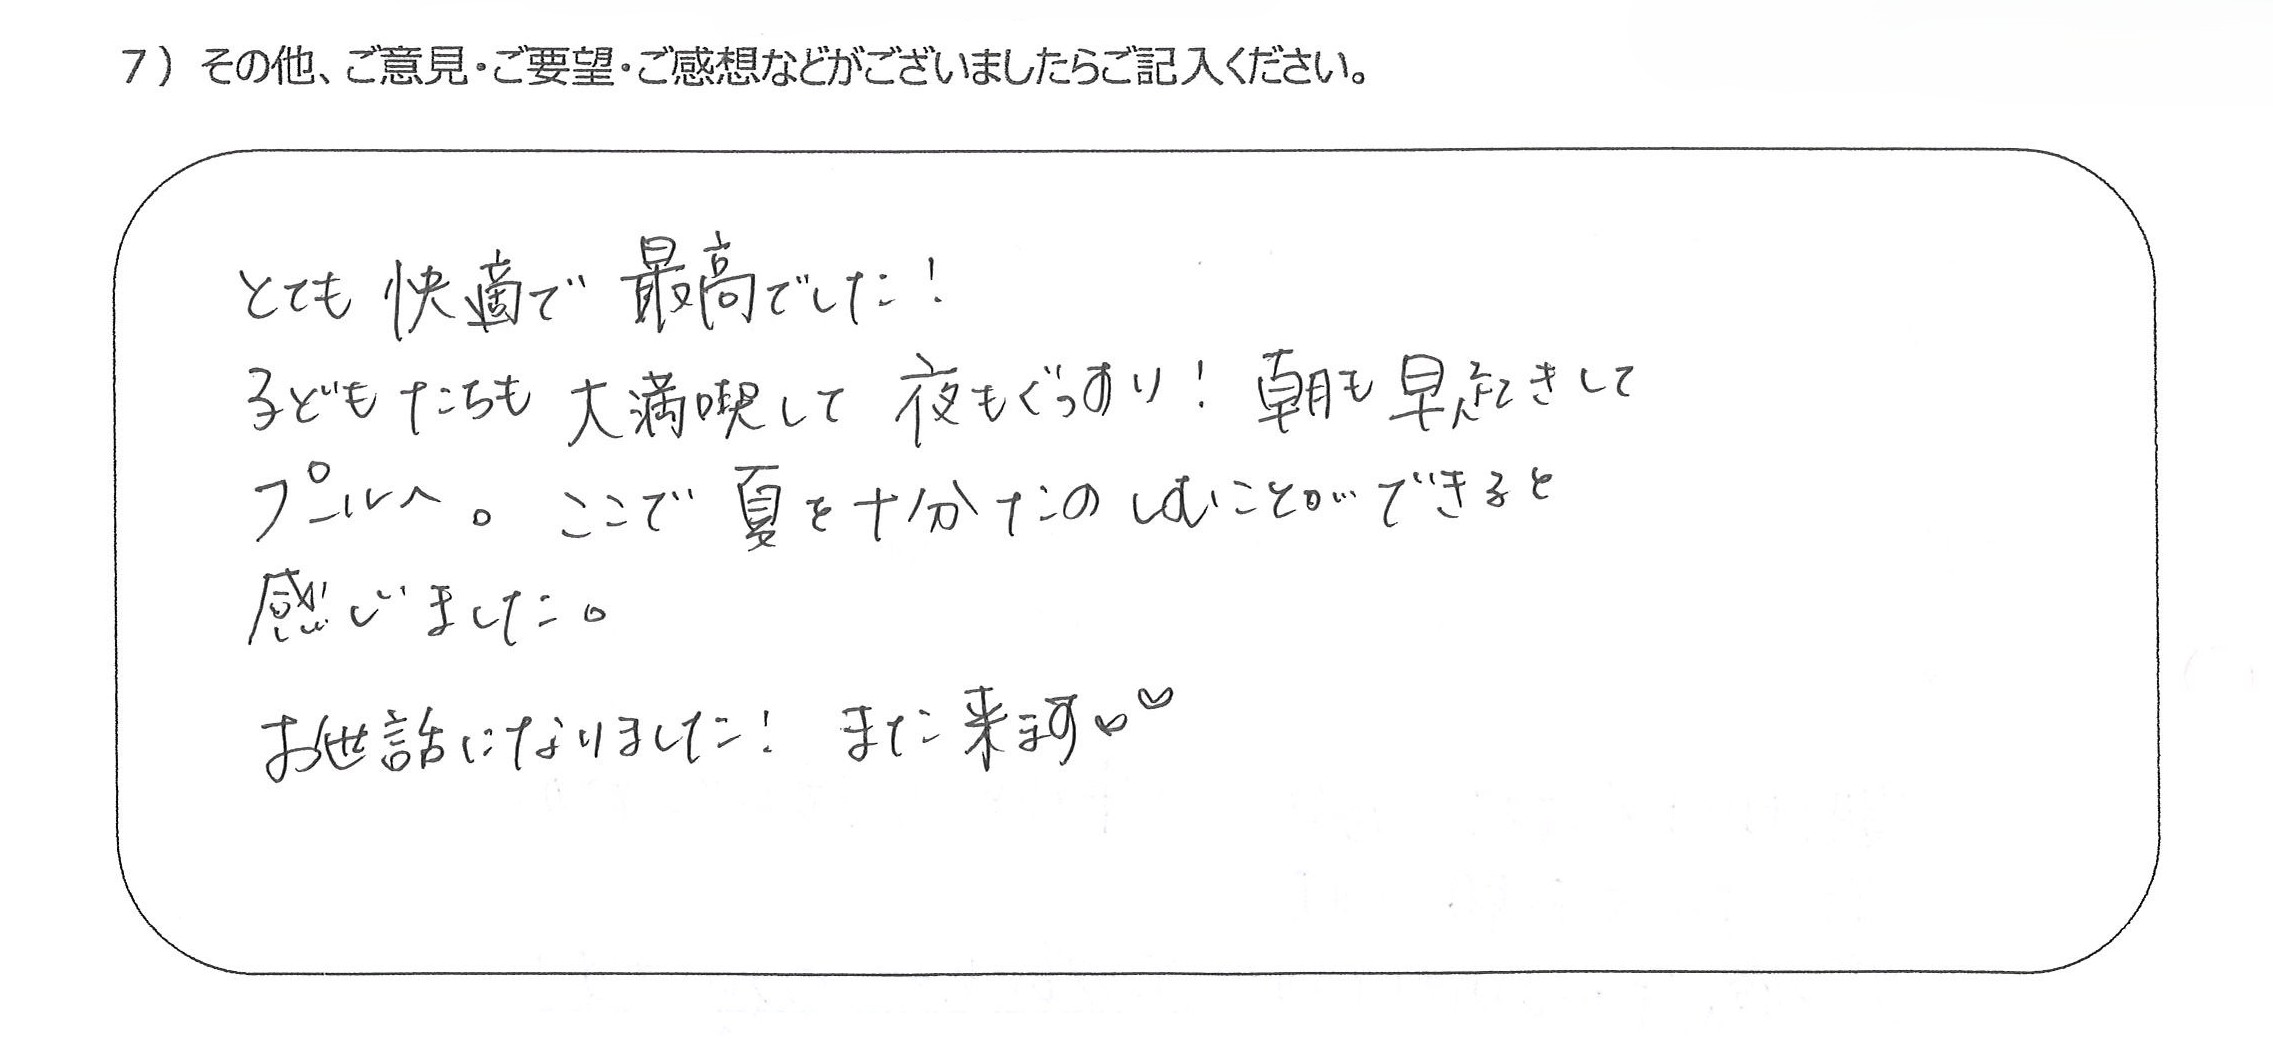 7）その他、ご意見・ご要望・ご感想などがございましたらご記入ください。
とても快適で最高でした！
子どもたちも大満喫して夜もぐっすり！朝も早起きして
プールへ。ここで夏を十分たのしむことができると
感じました。
お世話になりました！また来ます♡♡